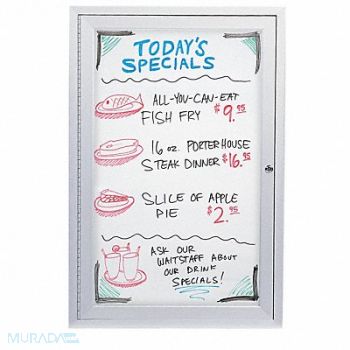 TODAY'S
SPECIALS
ALL-YOU-CAN-EAT
FISH FRY $9.95
16 oz. PORTERHOUSE
STEAK DINNER $16.95
SLICE OF APPLE
PIE $2.95
ASK OUR
WAITSTAFF ABOUT
OUR DRINK
SPECIALS!
MURADA